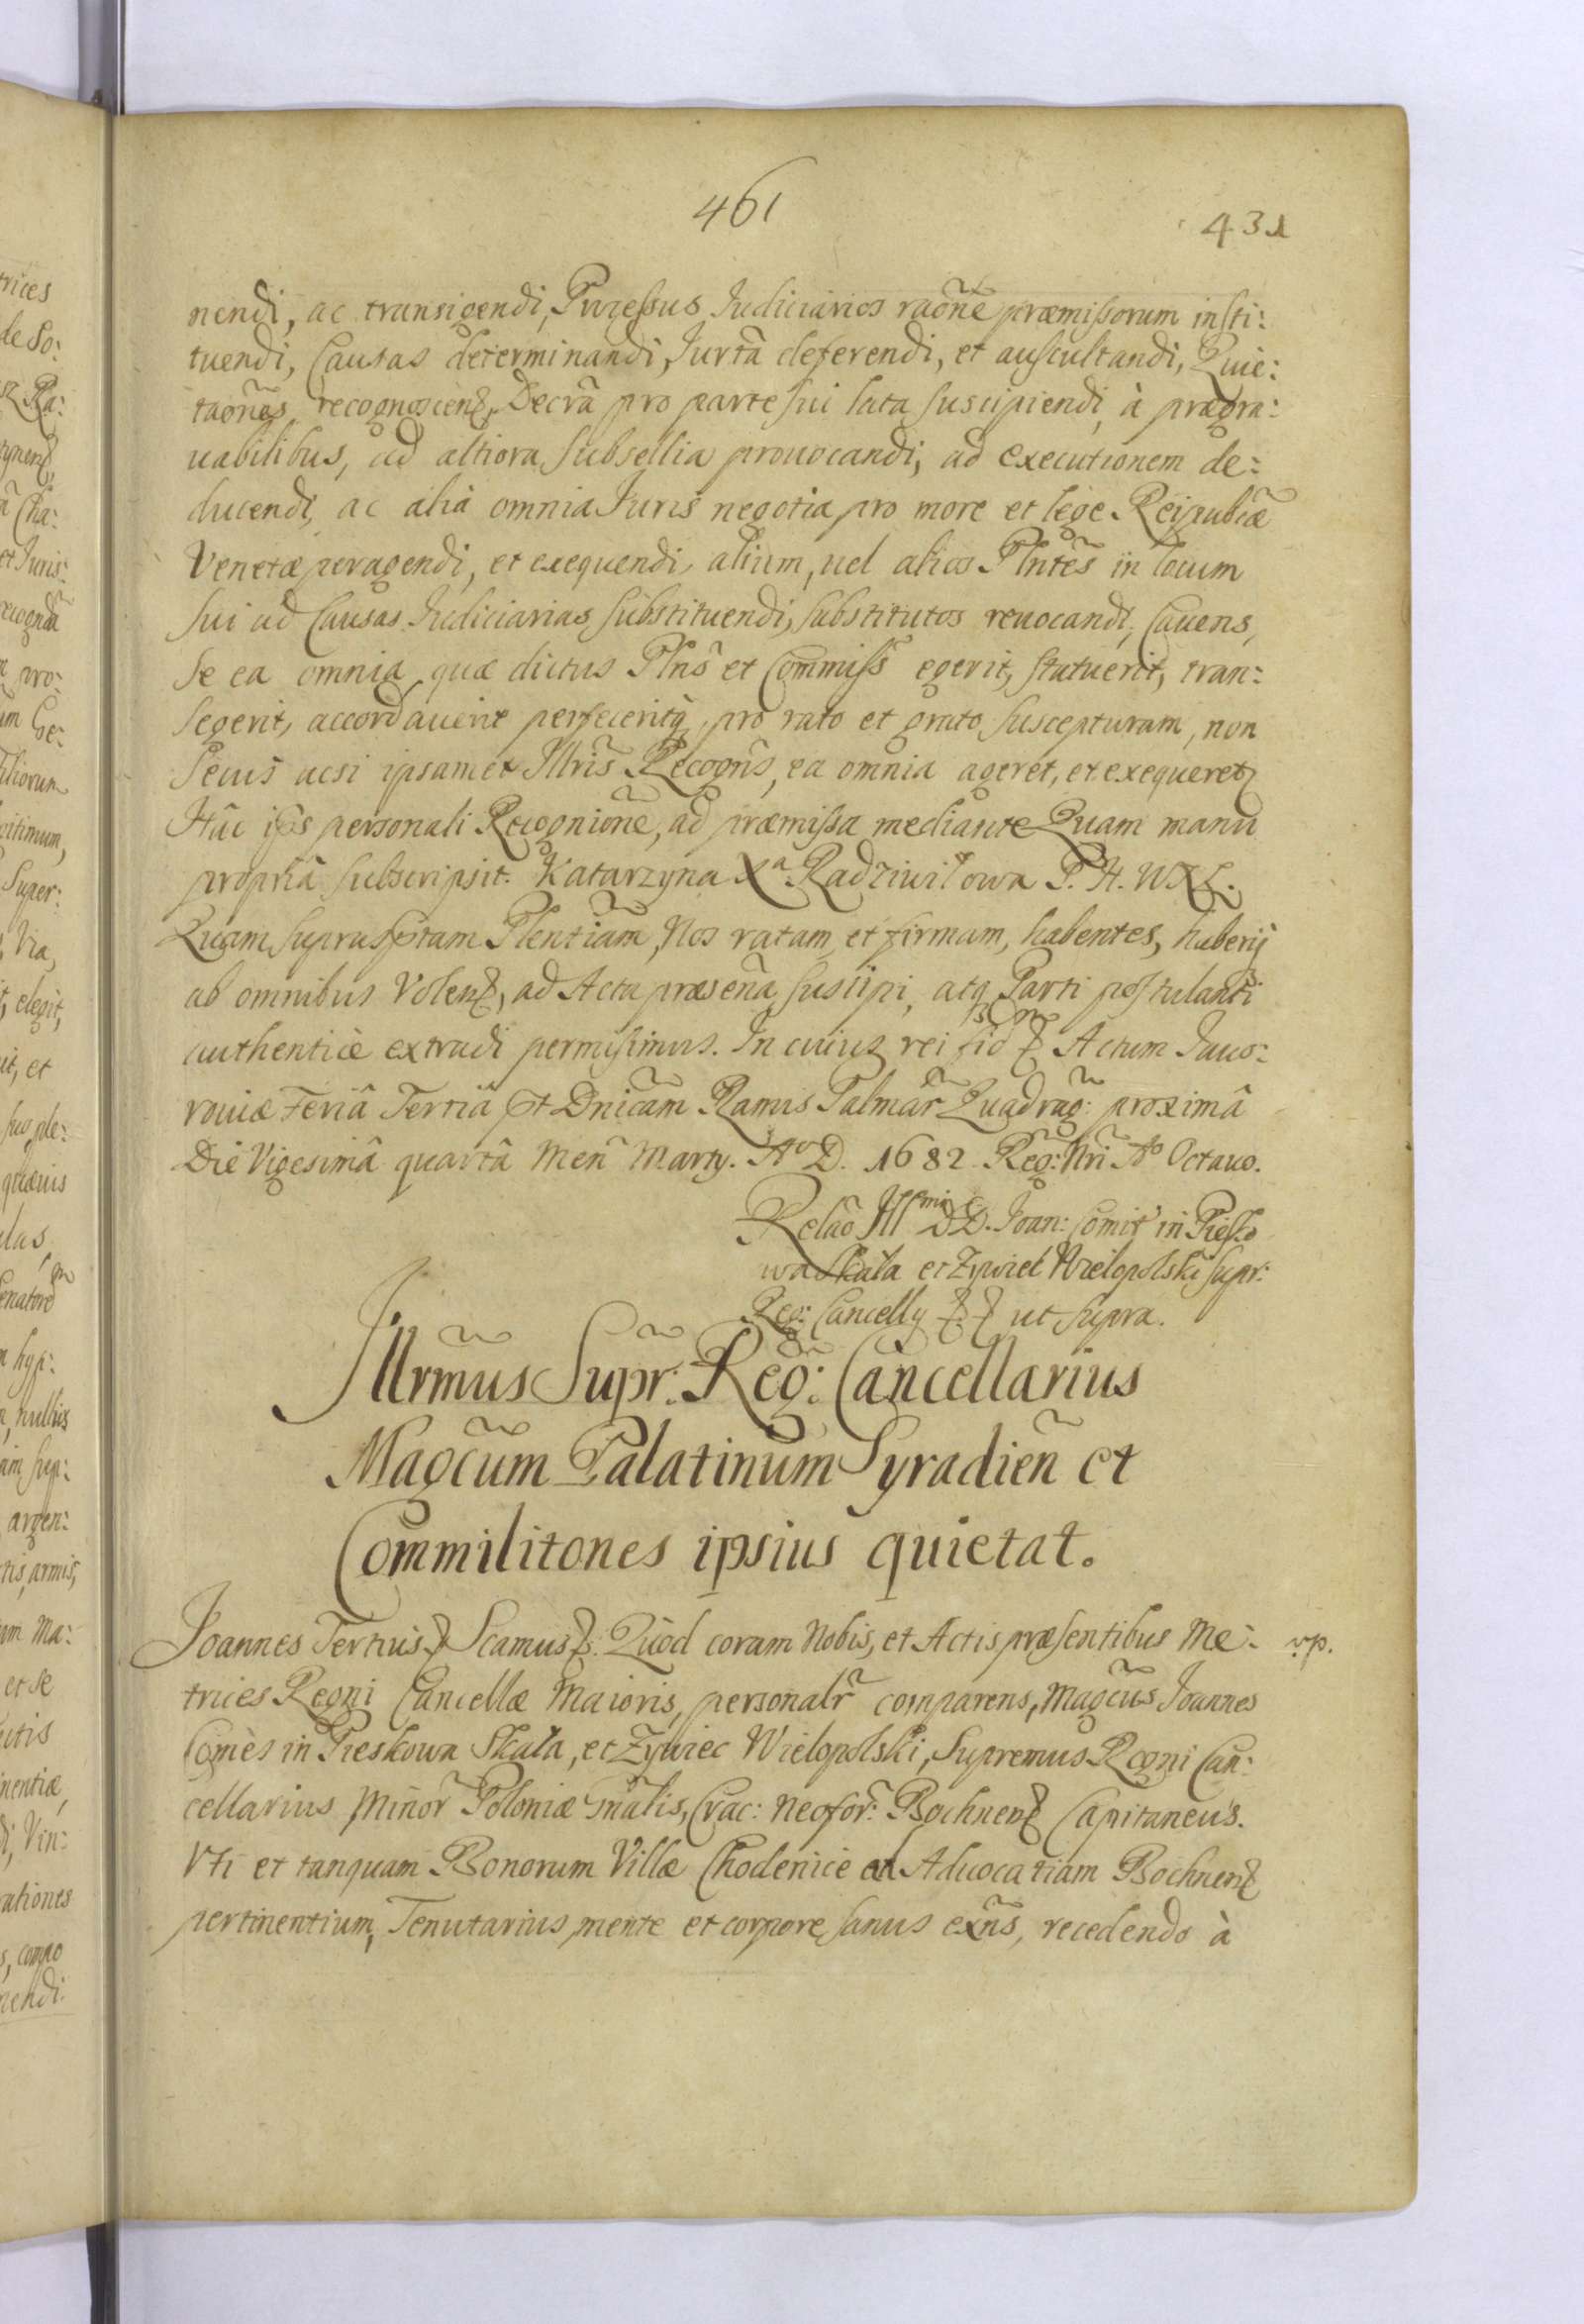 461
431
nendi, ac transigendi, Processus Iudiciarios raõne præmissorum insti:
tuendi, Causas determinandi, Iurta deferendi, et auscultandi, Quie:
taõnes recognoscen̄, Decra pro parte sui lata suscipiendi, à prægra:
uabilibus, ad altiora Subsellia prouocandi, ad executionem de:
ducendi, ac alia omnia Iuris negotia pro more et lege Reipublcæ
Venetæ peragendi, et exequendi, alium, uel alios Plntẽs in locum
sui ad Causas Iudiciarias substituendi, substitutos reuocandi, Cauens,
se ea omnia, quæ dictus Plns̃ et Commiss̃ egerit, statuerit, tran:
segerit, accordauerit perfeceritq, pro rato et grato suscepturam, non
Secus acsi ipsamet Illris̃ Recogns̃, ea omnia ageret, et exequeret
Hac ips personali Recognione, ad præmissa mediante Quam manu
propriâ subscripsit. Katarzyna Xa Radziwiłowa P. H. WXL.
Quam suprasptam Plentiam, Nos ratam, et firmam, habentes, haberiq
ab omnibus Volen̄, ad Acta præsena suscipi, atq Parti postulanti
authenticè extradi permisimus. In cuius rei fid Actum Iauo:
rouiæ Feriâ Tertiâ pt Dnicam Ramis Palmar̃ Quadrag: proximâ
Die Vigesimâ quartâ Men̄ Marty. Ao D. 1682 Reg: Nri Ao Octauo.
Relaõ Illmi DD. Ioan: Comit in Piesko
wa Skała et Zywiec Wielopolski supr:
Reg: Cancelly ut supra.
Illrmus Supr: Reg: Cancellarius
Magcum Palatinum Syradien̄ et
Commilitones ipsius quietat.
Joannes Tertius Scamus. Quod coram Nobis, et Actis præsentibus Me:
v.p.
trices Regni Cancellæ Maioris, personalr̃ comparens, Magcus Joannes
Comes in Pieskowa Skała, et Zywiec Wielopolski, Supremus Regni Can:
cellarius Minor̃ Poloniæ Gnalis, Crac: Neofor̃: Bochnen̄ Capitaneus.
Vti et tanquam Bonorum Villæ Chodenice ad Aduocatiam Bochnen̄
pertinentium, Tenutarius mente et corpore sanus exns̃, recedendo à